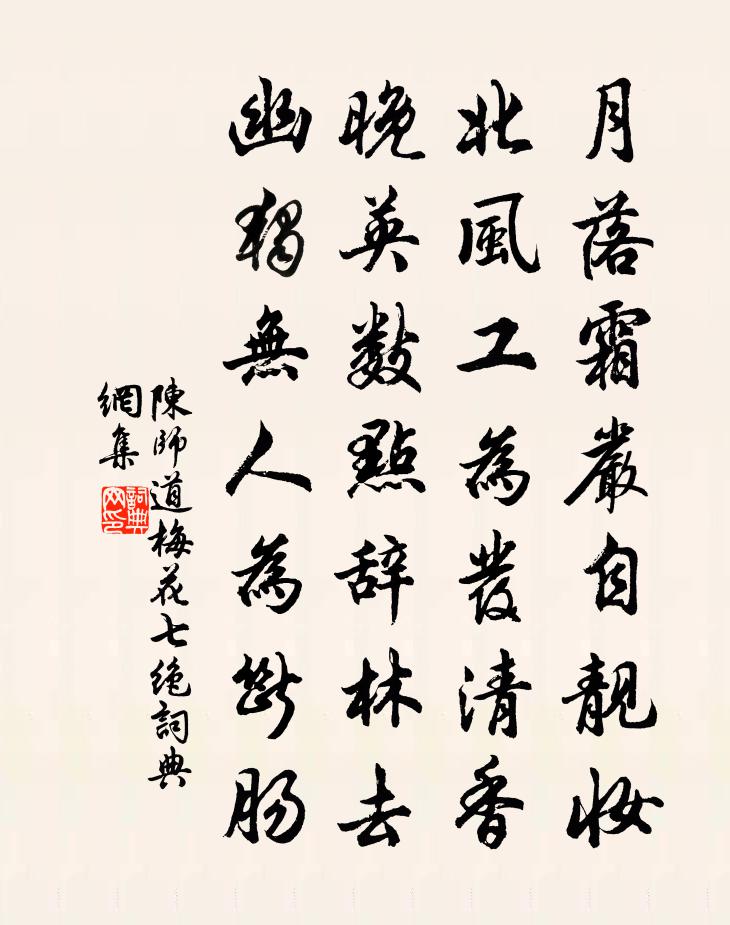 月落霜嚴自靚妝
北風工為發清香
晚英數點辞林去
幽獨無人為斷腸
陳師道梅花七絕詞典
網集
詞典
网印